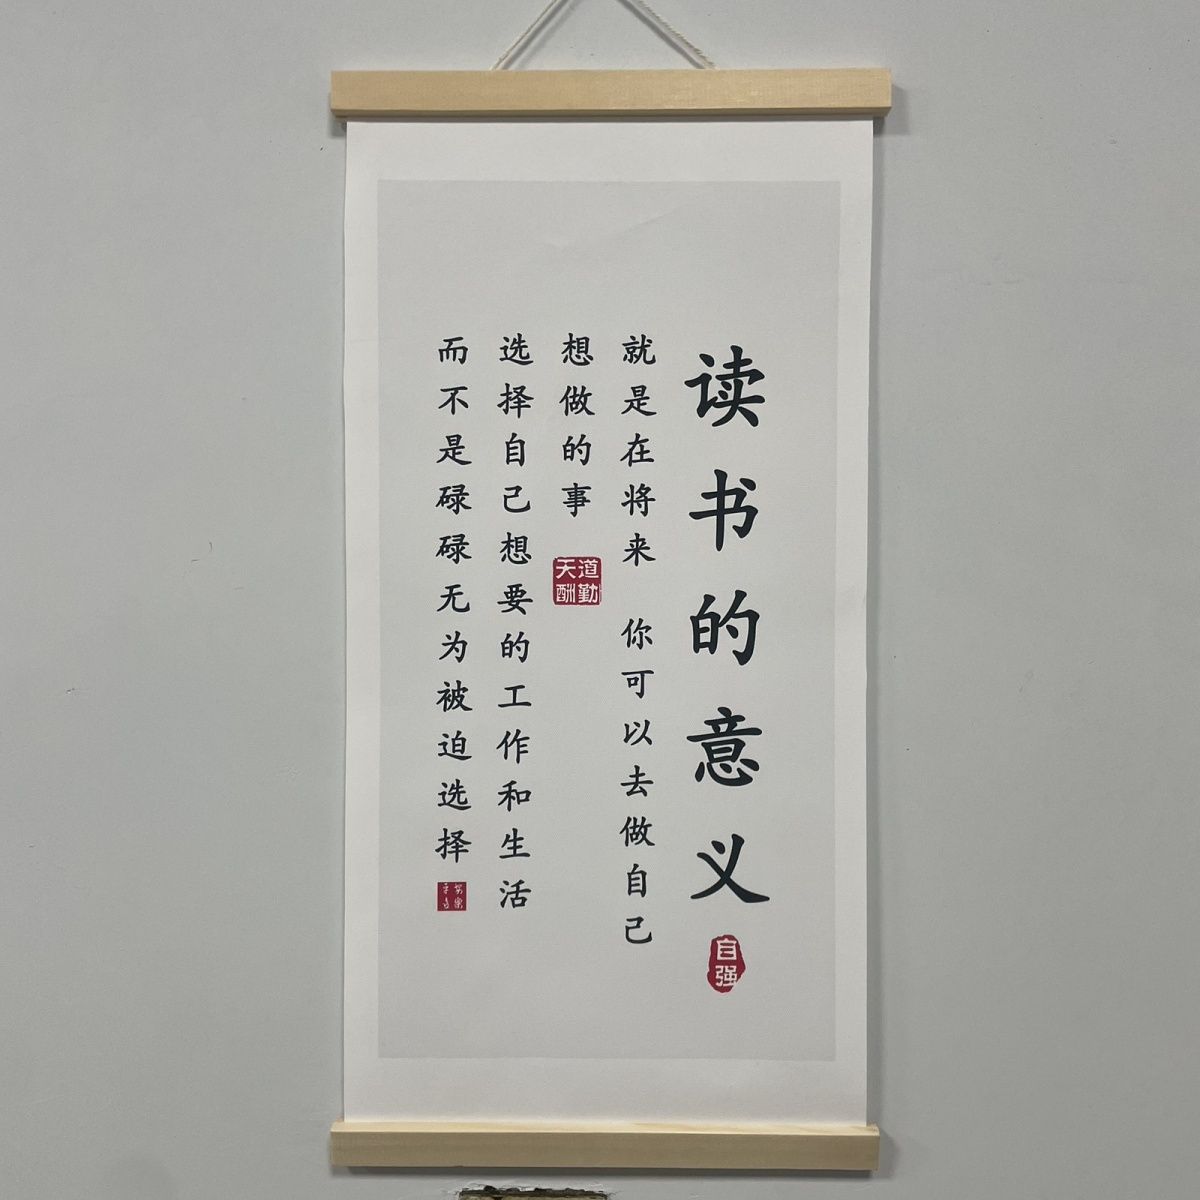 读书的意义
自强
就是在将来 你可以去做自己
想做的事
天道酬勤
选择自己想要的工作和生活
而不是碌碌无为被迫选择